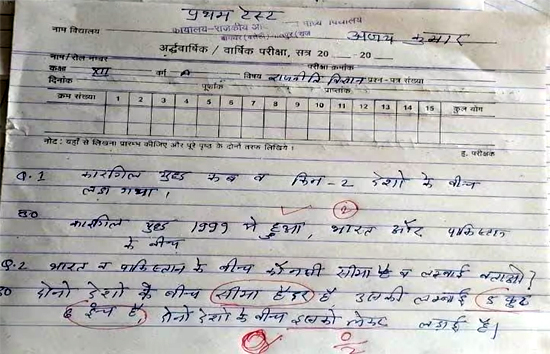 प्रथम टेस्ट
नाम विद्यालय कार्यालय-राजकीय आ. माध्य विद्यालय
अजय कुमार
अर्द्धवार्षिक / वार्षिक परीक्षा, सत्र 20 20
नाम/रोल नम्बर परीक्षा क्रमांक
कक्षा XII वर्ग A विषय राजनीति विज्ञान प्रश्न-पत्र संख्या
दिनांक पूर्णांक प्राप्तांक
क्रम संख्या 1 2 3 4 5 6 7 8 9 10 11 12 13 14 15 कुल योग
नोट : यहाँ से लिखना प्रारम्भ कीजिए और पूरे पृष्ठ के दोनों तरफ लिखिये । ह. परीक्षक
Q.1 कारगिल युद्ध कब व किन-2 देशो के बीच
लडा गया ।
उ० 2
कारगिल युद्ध 1999 मे हुआ, भारत और पाकिस्तान
के बीच
Q.2 भारत व पाकिस्तान के बीच कौनसी सीमा है व लम्बाई बताओ?
उ० दोनो देशो के बीच सीमा हैडर है उसकी लम्बाई 5 फुट
6 ईन्च है, दोनो देशो के बीच इसको लेकर लडाई है।
0 0/2